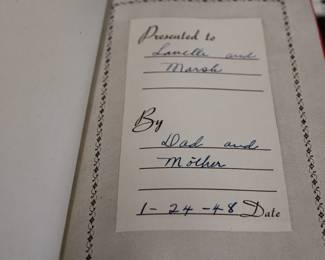 Presented to
Lavelle and
Marsh
By
Dad and
Mother
1-24-48 Date